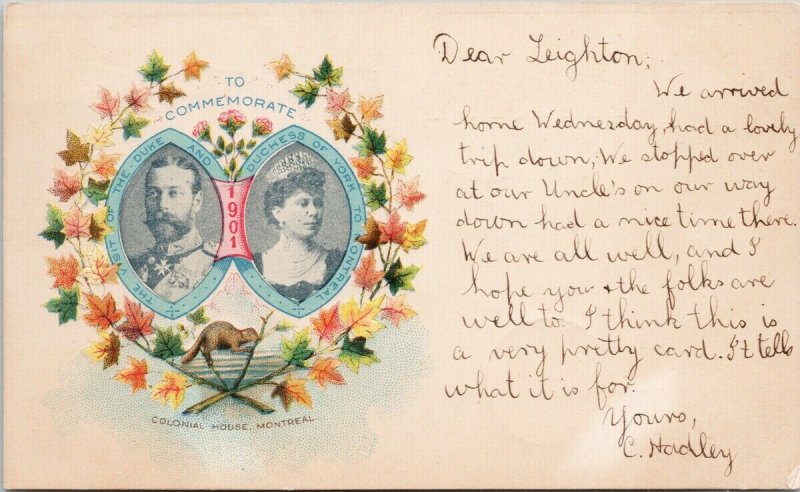 TO
COMMEMORATE
THE VISIT OF THE DUKE AND DUCHESS OF YORK TO MONTREAL
1901
COLONIAL HOUSE, MONTREAL
Dear Leighton;
We arrived
home Wednesday, had a lovely
trip down, We stopped over
at our Uncle's on our way
down had a nice time there.
We are all well, and I
hope you & the folks are
well to. I think this is
a very pretty card. It tells
what it is for.
Yours,
C. Hadley